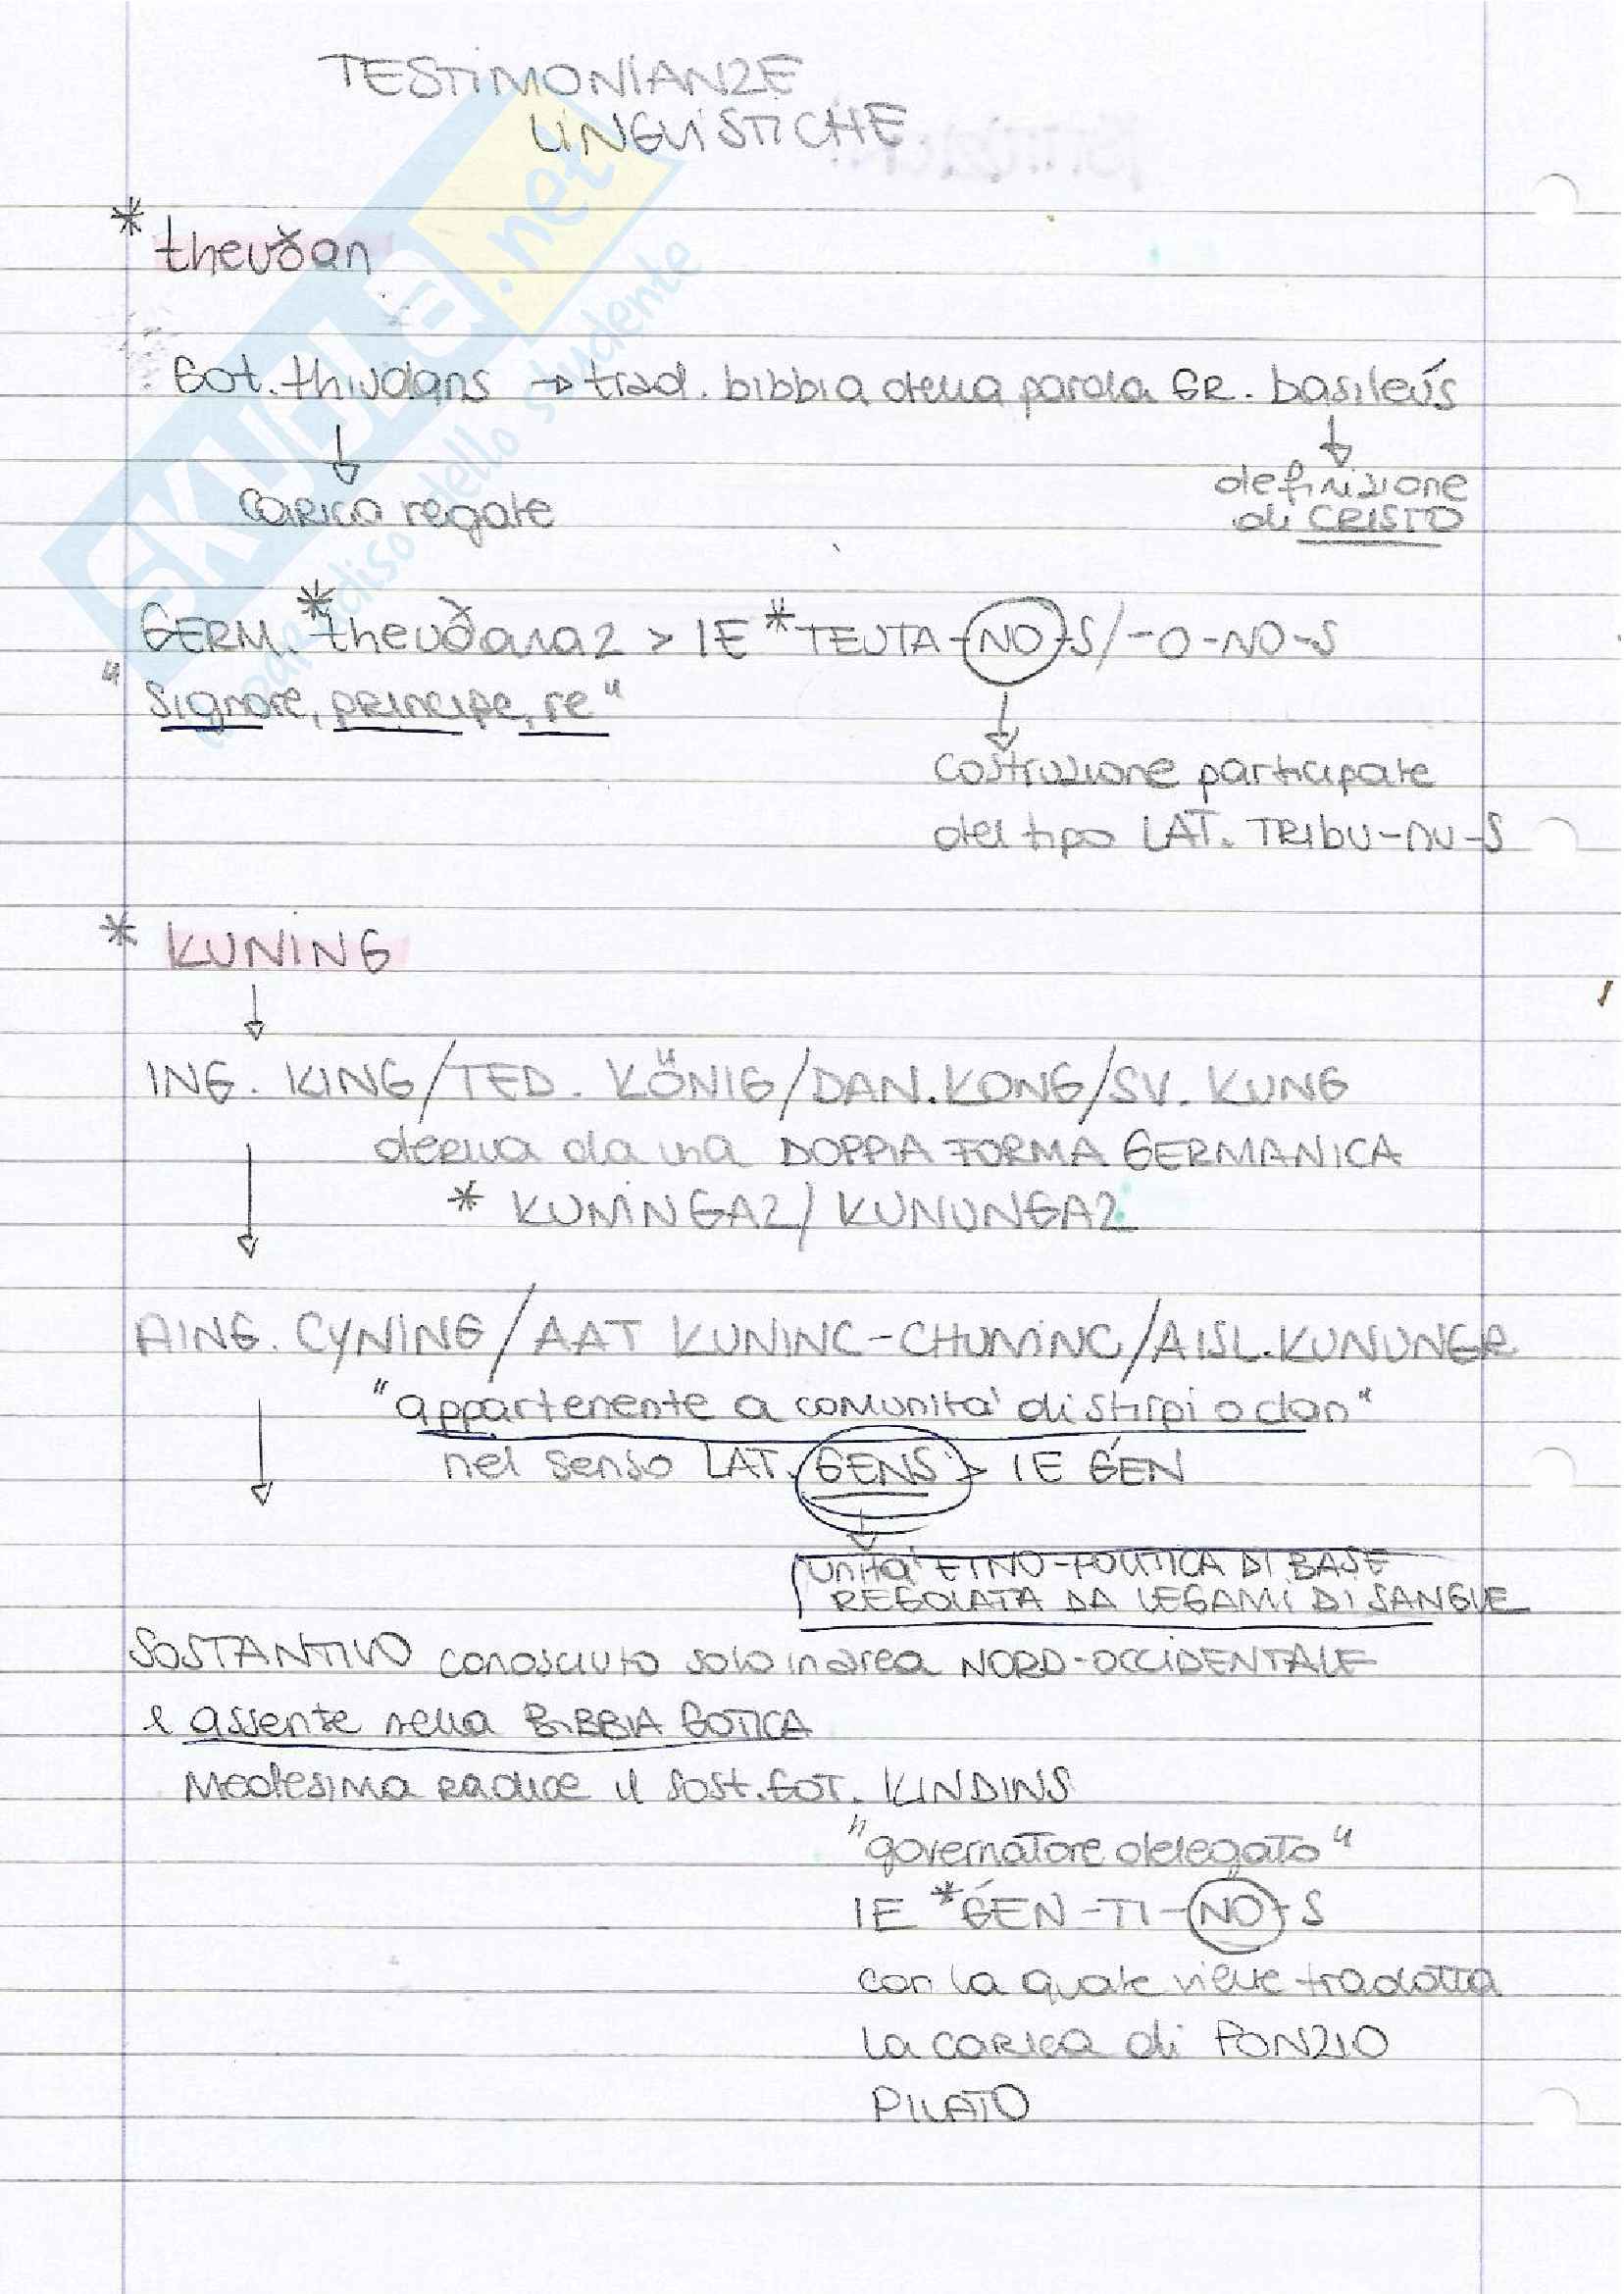 TESTIMONIANZE
LINGUISTICHE
* theuðan
Got. thiudans → trad. bibbia della parola GR. basileús
↓ ↓
carica regale
definizione
di CRISTO
GERM. *theuðanaz > IE *TEUTA-NO-S/-O-NO-S
"Signore, principe, re"
↓
costruzione participale
del tipo LAT. TRIBU-NU-S
* KUNING
↓
ING. KING/TED. KÖNIG/DAN. KONG/SV. KUNG
deriva da una DOPPIA FORMA GERMANICA
* KUNINGAZ/KUNUNGAZ
↓
AING. CYNING/AAT KUNINC-CHUNINC/AISL. KUNUNGR
"appartenente a comunità di stirpi o clan"
nel senso LAT. GENS > IE ǴEN
↓
UNITA' ETNO-POLITICA DI BASE
REGOLATA DA LEGAMI DI SANGUE
SOSTANTIVO conosciuto solo in area NORD-OCCIDENTALE
e assente nella BIBBIA GOTICA
Medesima radice il sost. GOT. KINDINS
"governatore delegato"
IE *ǴEN-TI-NO-S
con la quale viene tradotta
la carica di PONZIO
PILATO
SKUOLA.net
il paradiso dello studente